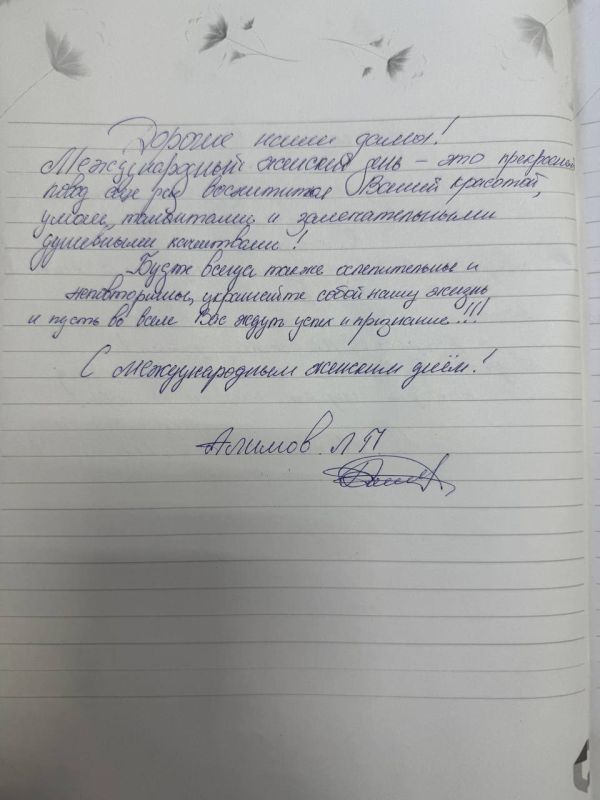 Дорогие наши дамы!
Международный женский день – это прекрасный
повод еще раз восхититься Вашей красотой,
умом, талантами и замечательными
душевными качествами!
Будьте всегда также ослепительны и
неповторимы, украшайте собой нашу жизнь
и пусть во всем Вас ждут успех и признание!!!
С международным женским днём!
Алимов Л П